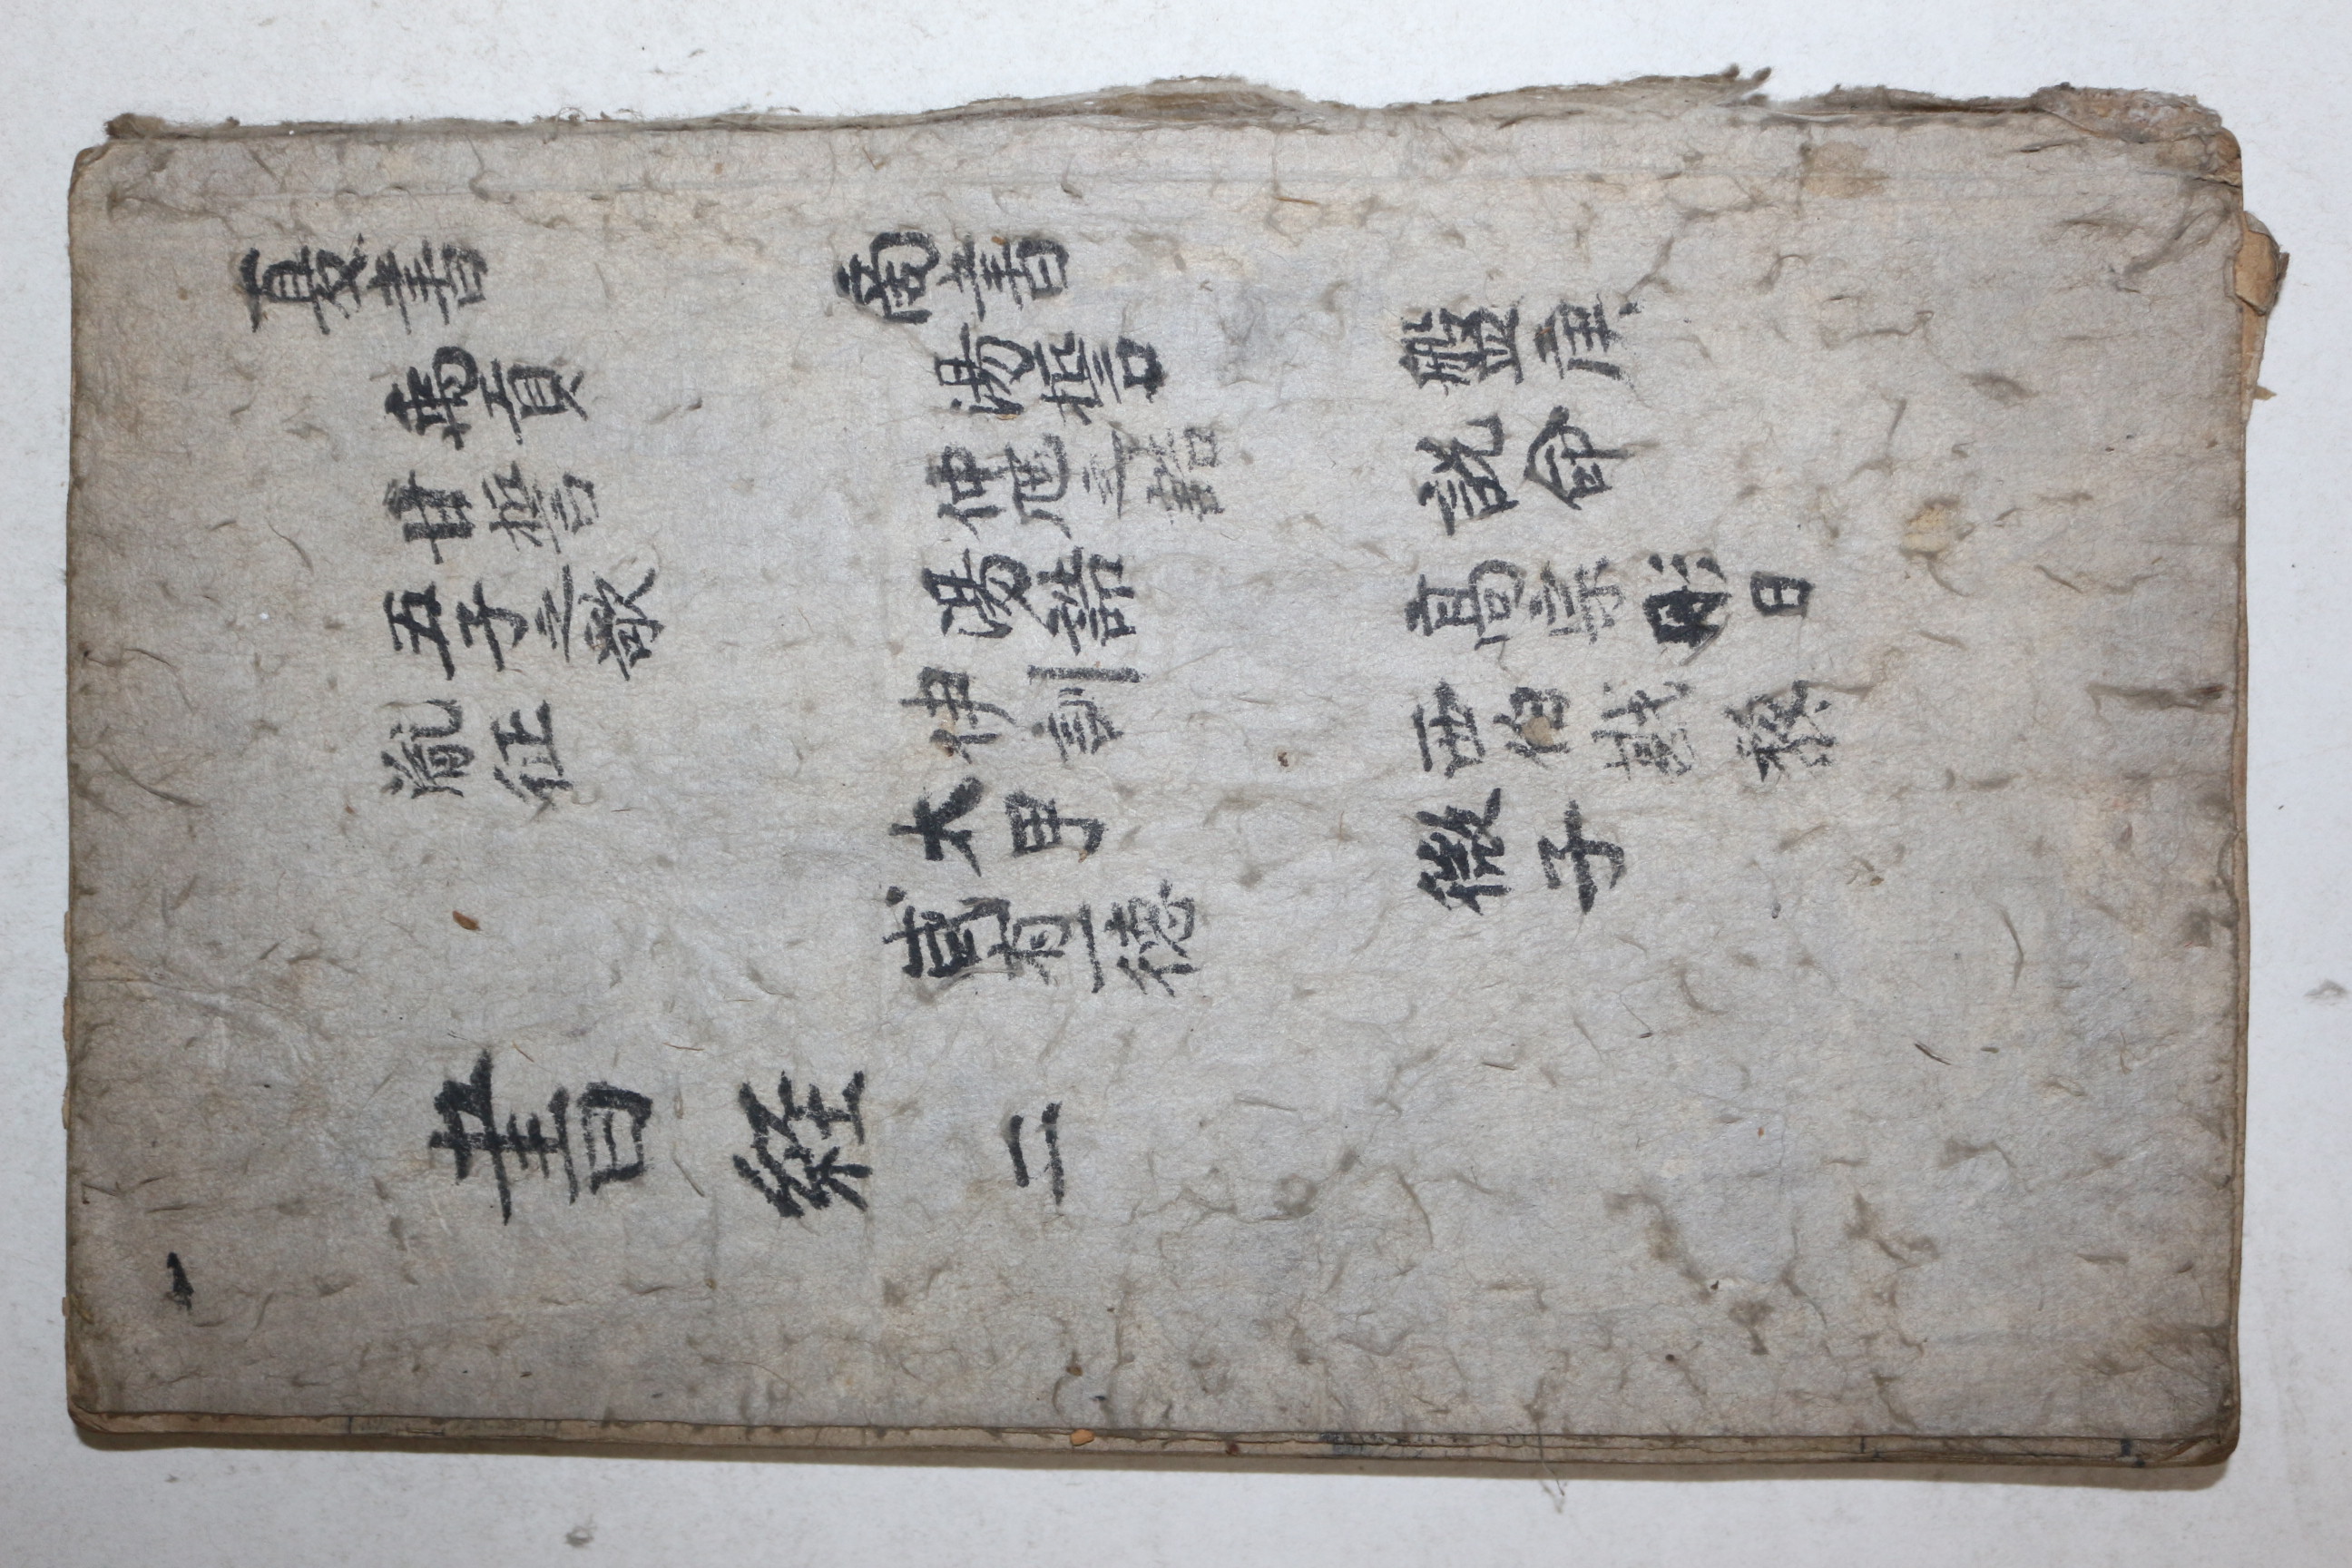 夏書
禹貢
甘誓
五子之歌
胤征
商書
湯誓
仲虺之誥
湯誥
伊訓
太甲
咸有一徳
盤庚
説命
高宗肜日
西伯戡黎
微子
書経 二